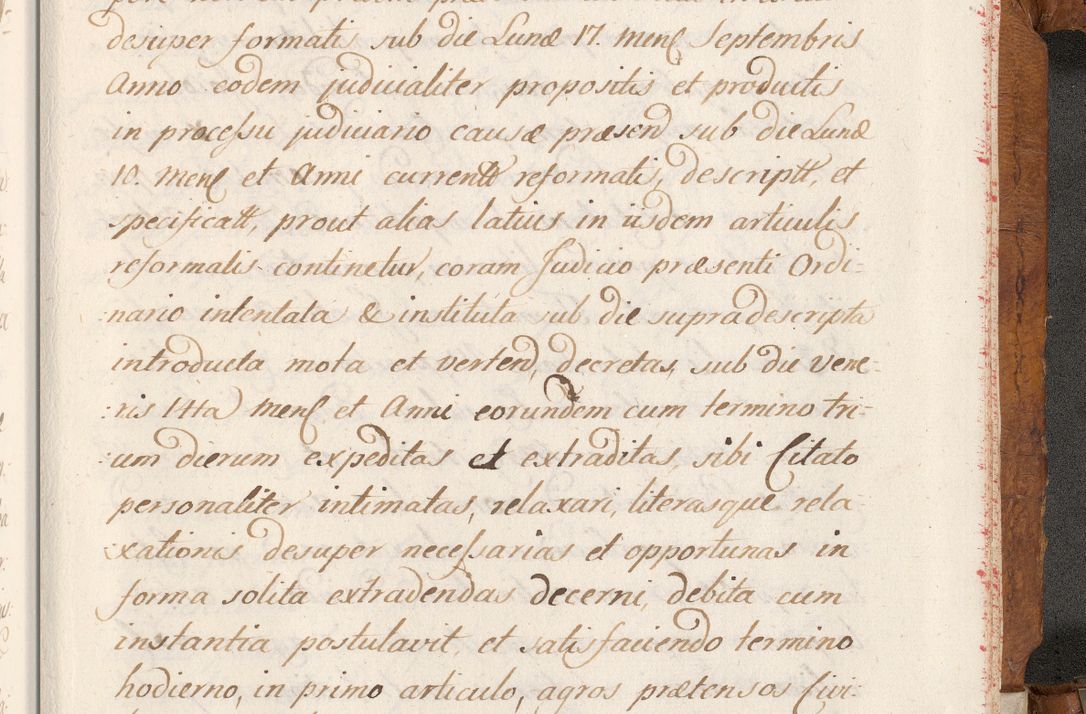 desuper formatis sub die Lunæ 17. Menſ Septembris
Anno eodem judicialiter propositis et productis
in proceſsu judiciario causæ præsend sub die Lunæ
10. Menſ et Anni currentt reformatis, descriptt, et
specificatt, prout alias latius in iisdem articulis
reformatis continetur, coram Judicio præsenti Ordi-
nario intentata & instituta sub die supradescripta
introducta mota et vertend, decretas, sub die Vene-
ris 14ta Menſ et Anni eorundem cum termino tri-
um dierum expeditas et extraditas, sibi Citato
personaliter intimatas, relaxari, literasque rela
xationis desuper neceſsarias et opportunas in
forma solita extradendas decerni, debita cum
instantia postulavit, et satisfaciendo termino
hodierno, in primo articulo, agros prætensos Civi-